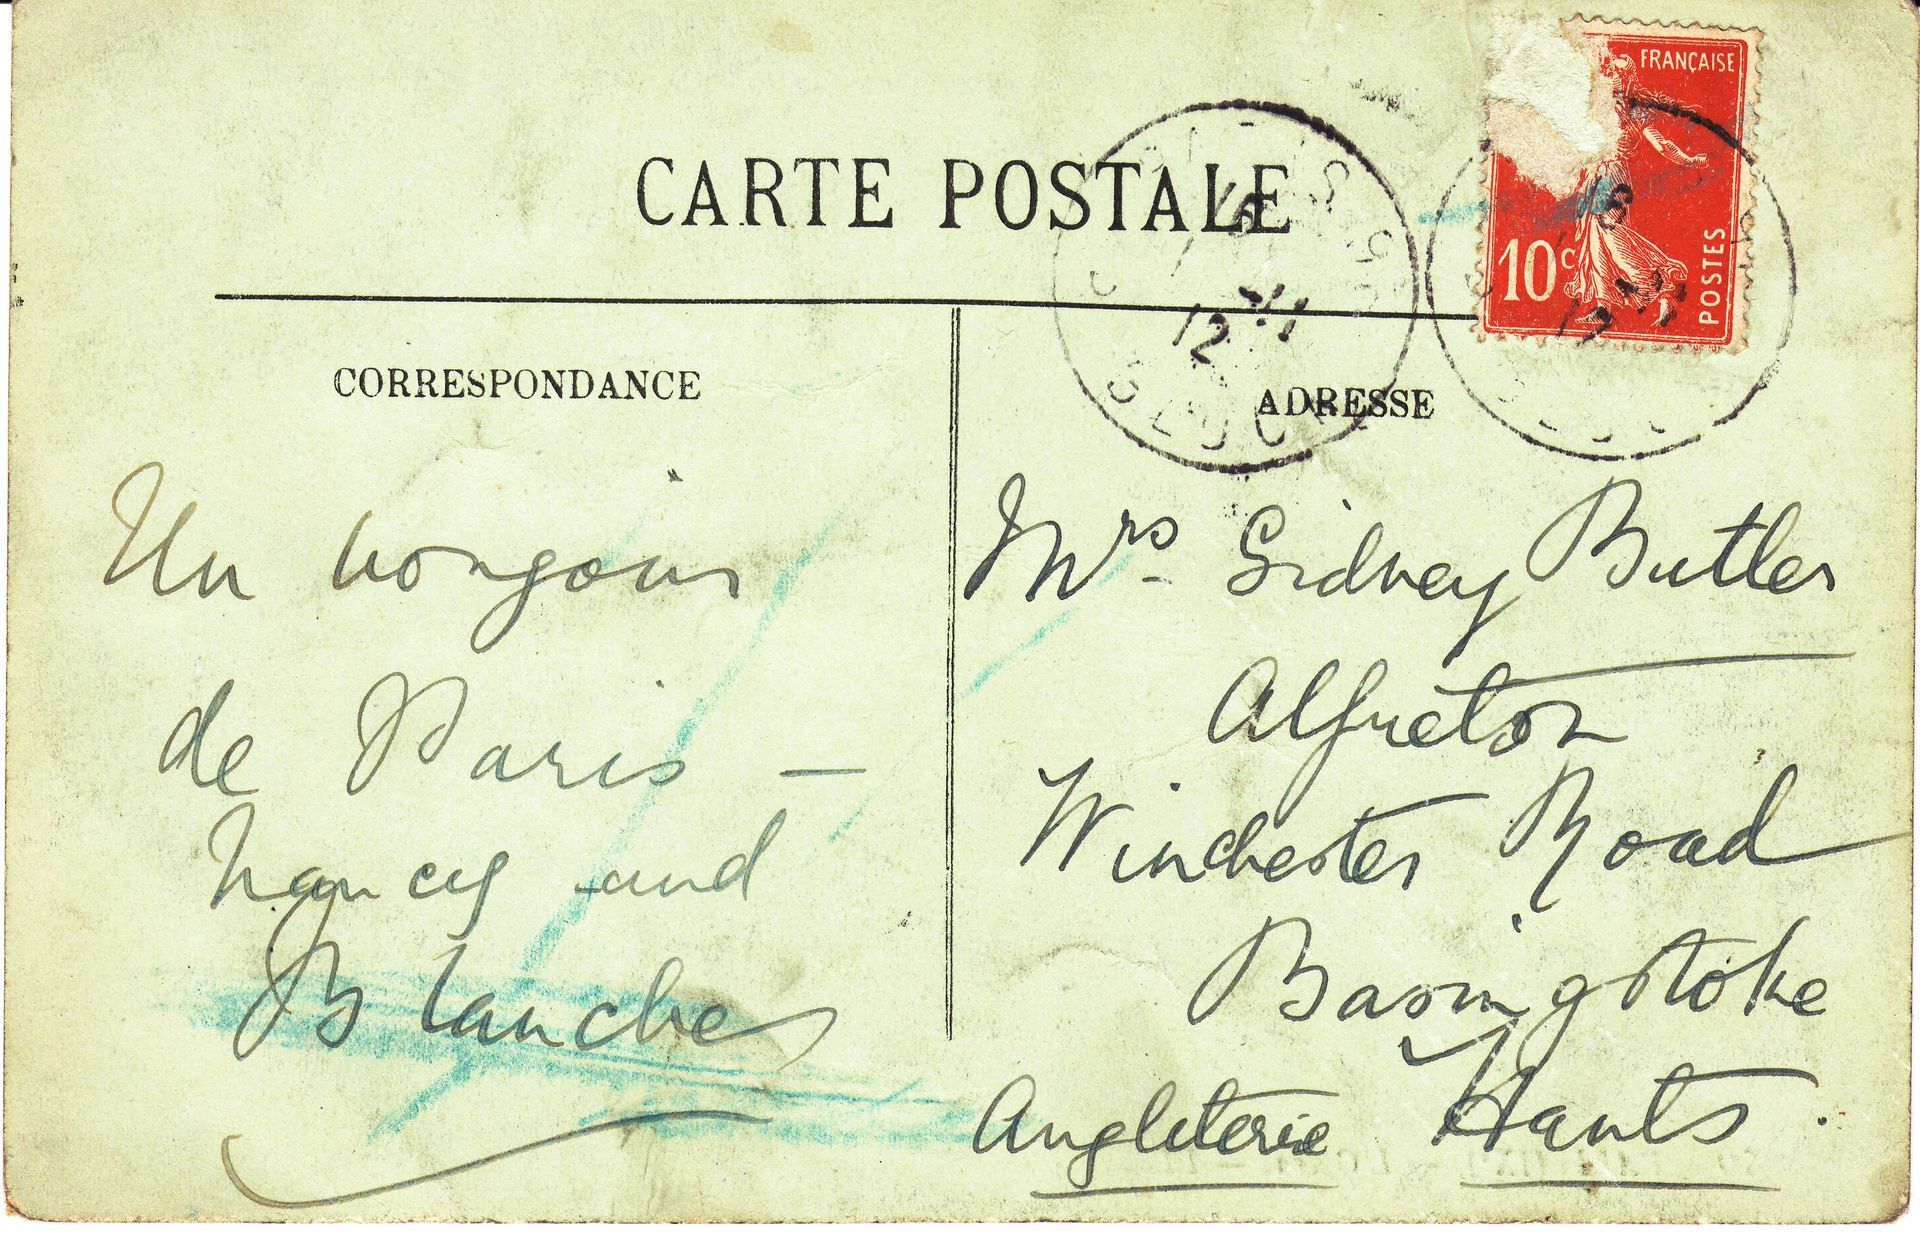 CARTE POSTALE
FRANÇAISE
10c
POSTES
16
12
CORRESPONDANCE
ADRESSE
Un bonjour
de Paris —
Nancy and
Blanche
Mrs. Sidney Butler
Alfreton
Winchester Road
Basingstoke
Hants.
Angleterre